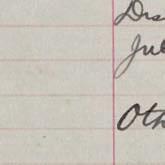 Dis
Jul
Oth